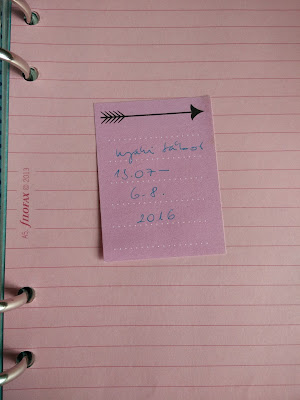 nyári
15.07—
6.8.
2016
A5, filofax © 2013